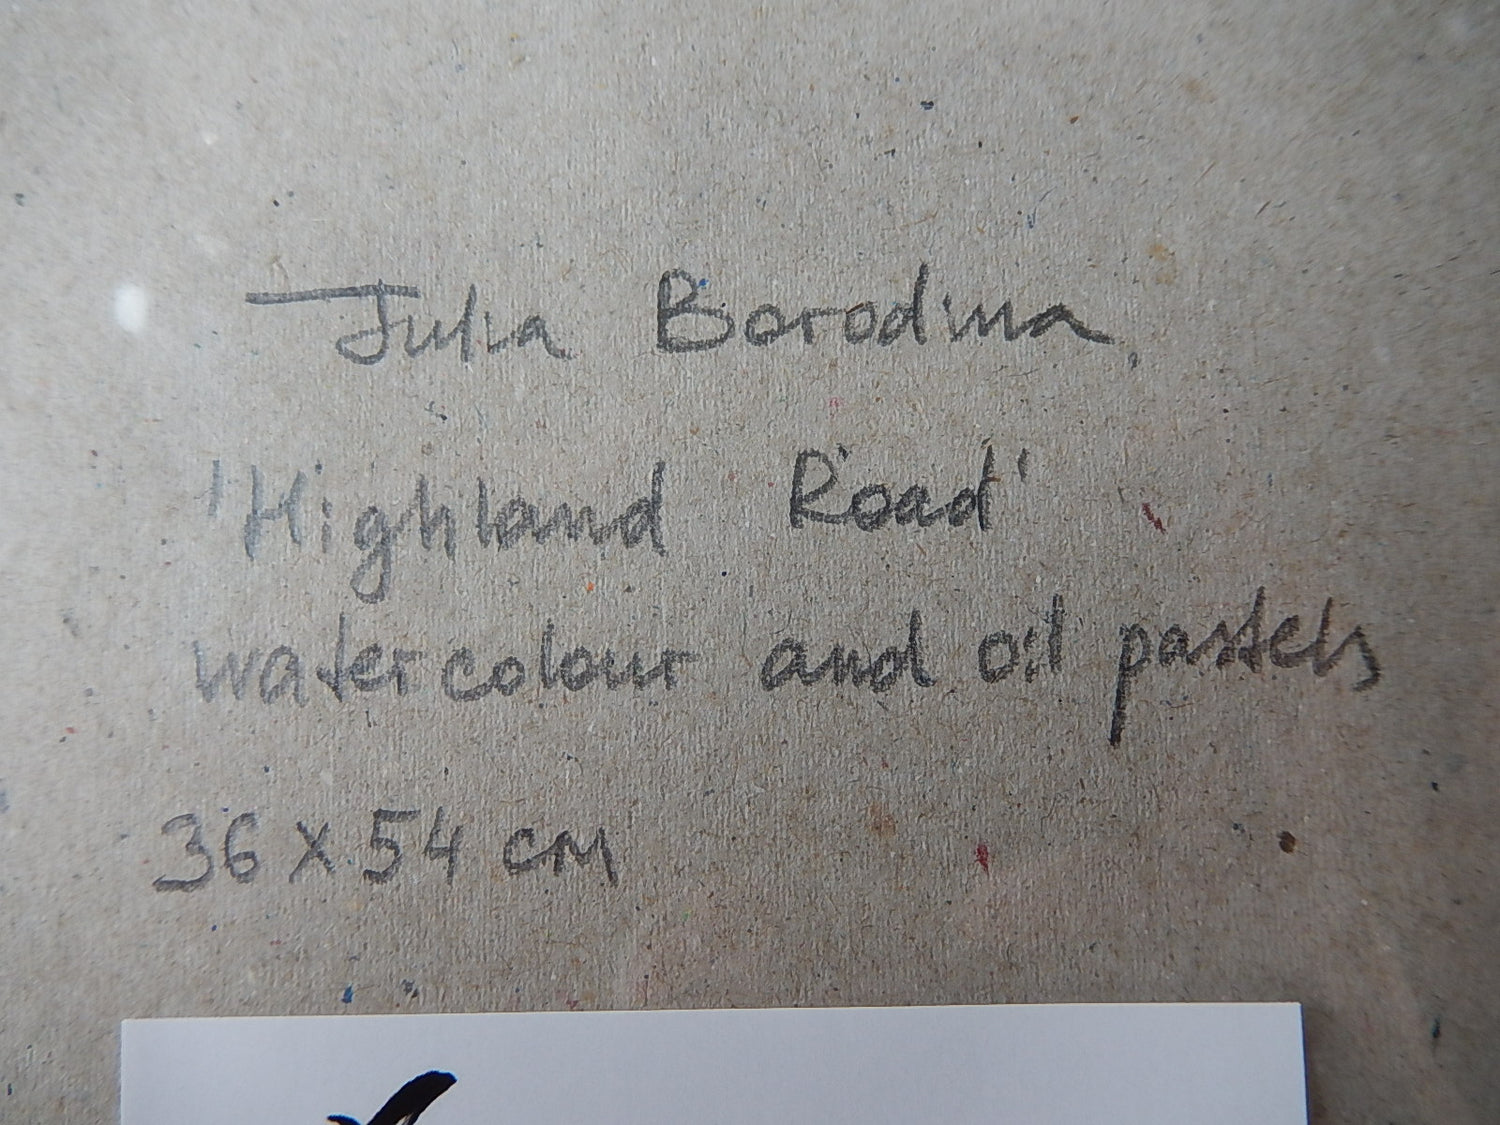 Julia Borodina,
'Highland Road'
watercolour and oil pastels
36 x 54 cm